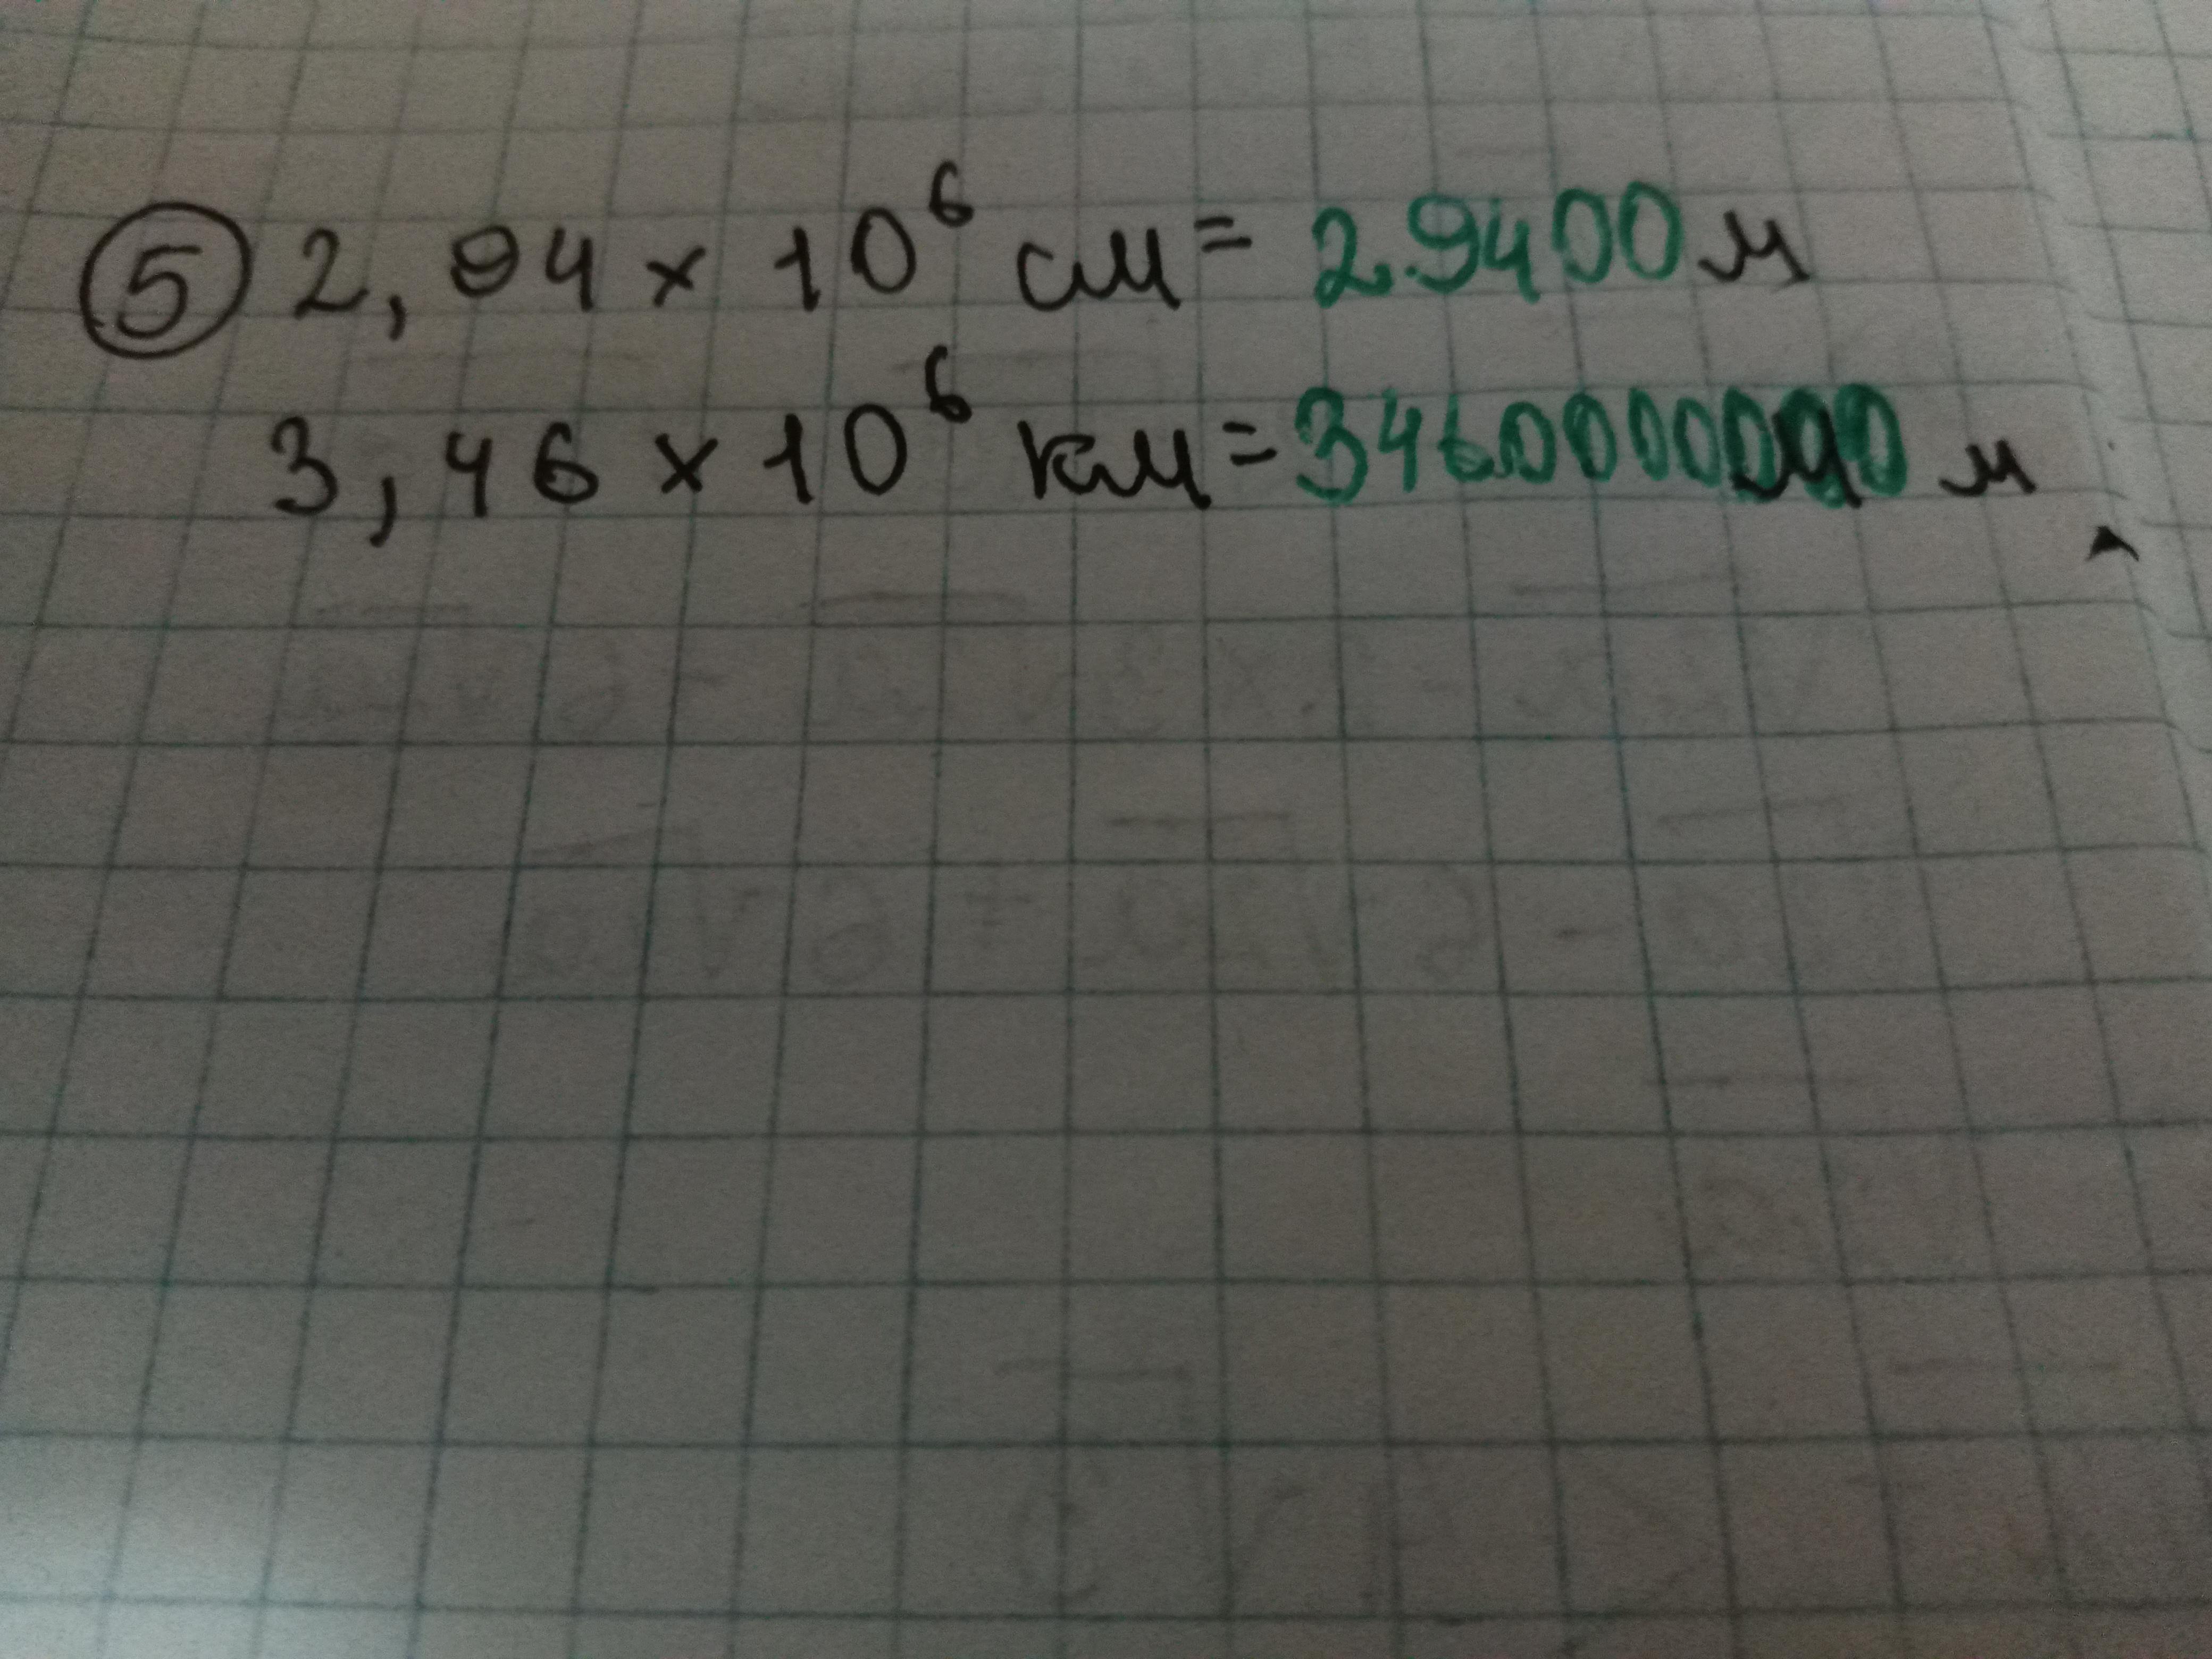 ⑤ 2,94 × 10⁶ см = 29400 м
3,46 × 10⁶ км = 3460000000 м